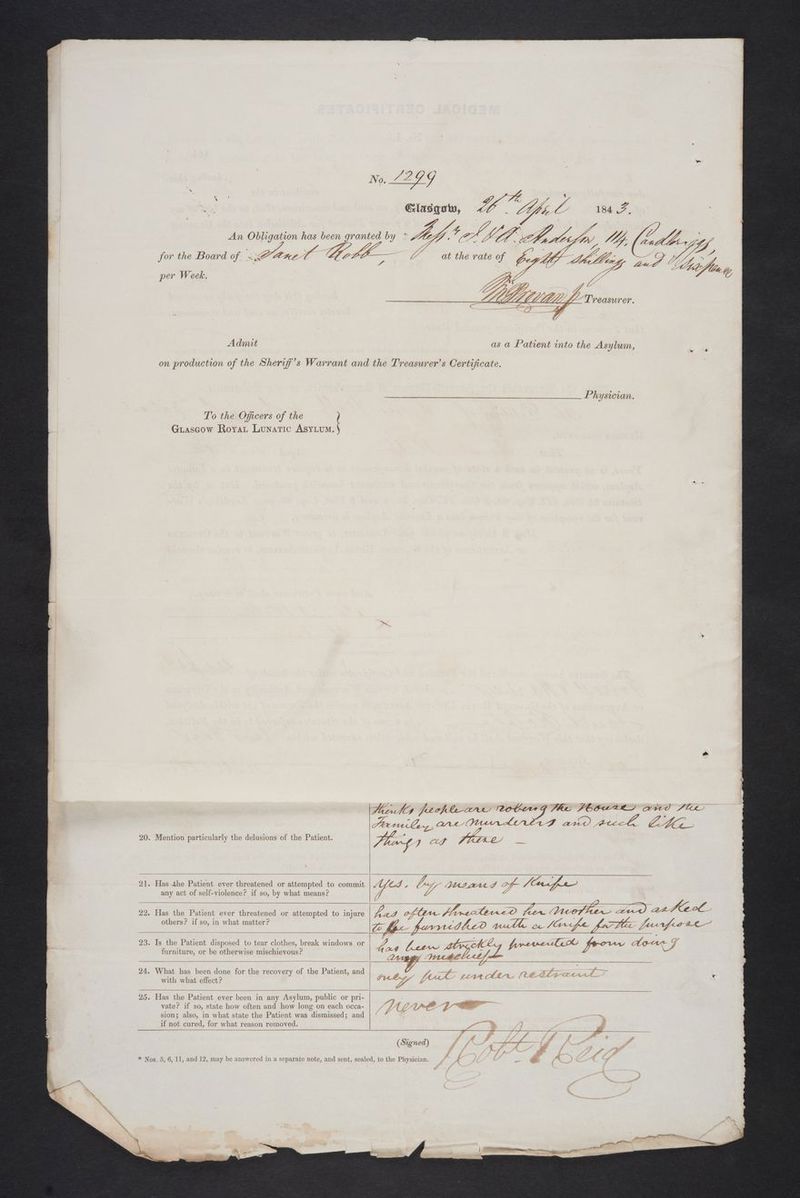 No. 1299
Glasgow, 26th April 1843.
An Obligation has been granted by Messrs J. & A. Anderson, 114, Candleriggs,
for the Board of Janet Robb, at the rate of Eight Shillings and Sixpence
per Week.
Treasurer.
Admit as a Patient into the Asylum,
on production of the Sheriff's Warrant and the Treasurer's Certificate.
Physician.
To the Officers of the
GLASGOW ROYAL LUNATIC ASYLUM.
thinks people are robering the House and the
20. Mention particularly the delusions of the Patient. Familey are Murderers and such like
things as these —
21. Has the Patient ever threatened or attempted to commit Yes. by means of Knife
any act of self-violence? if so, by what means?
22. Has the Patient ever threatened or attempted to injure has often threatened her Mother and asked
others? if so, in what matter? to be furnished with a Knife for the purpose
23. Is the Patient disposed to tear clothes, break windows or has been strickley prevented from doing
furniture, or be otherwise mischievous? any mischief
24. What has been done for the recovery of the Patient, and only put under restraint
with what effect?
25. Has the Patient ever been in any Asylum, public or pri-
vate? if so, state how often and how long on each occa- never
sion; also, in what state the Patient was dismissed; and
if not cured, for what reason removed.
(Signed) Robt Reid
* Nos. 5, 6, 11, and 12, may be answered in a separate note, and sent, sealed, to the Physician.